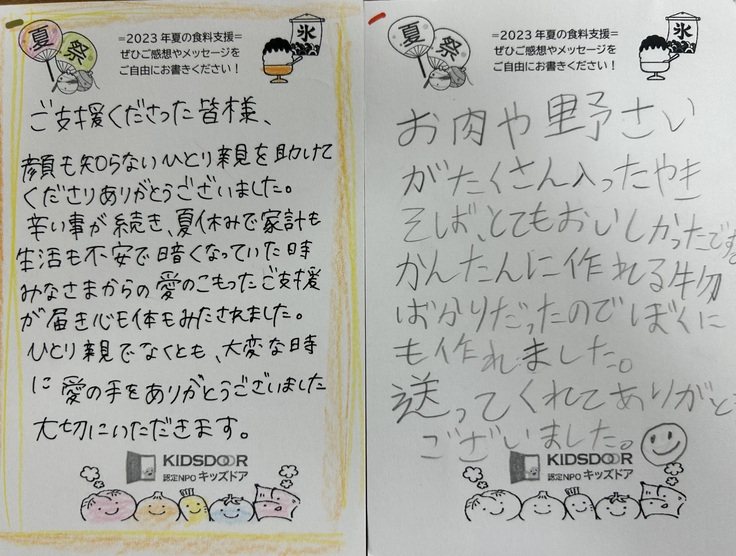 夏
祭
氷
=2023年夏の食料支援=
ぜひご感想やメッセージを
ご自由にお書きください!
ご支援くださった皆様、
顔も知らないひとり親を助けて
くださりありがとうございました。
辛い事が続き、夏休みで家計も
生活も不安で暗くなっていた時
みなさまからの愛のこもったご支援
が届き心も体もみたされました。
ひとり親でなくとも、大変な時
に愛の手をありがとうございました
大切にいただきます。
KIDSDOOR
認定NPO キッズドア
夏
祭
氷
=2023年夏の食料支援=
ぜひご感想やメッセージを
ご自由にお書きください!
お肉や野さい
がたくさん入ったやき
そば、とてもおいしかったです。
かんたんに作れる物
ばかりだったのでぼくに
も作れました。
送ってくれてありがと
ございました。
KIDSDOOR
認定NPO キッズドア